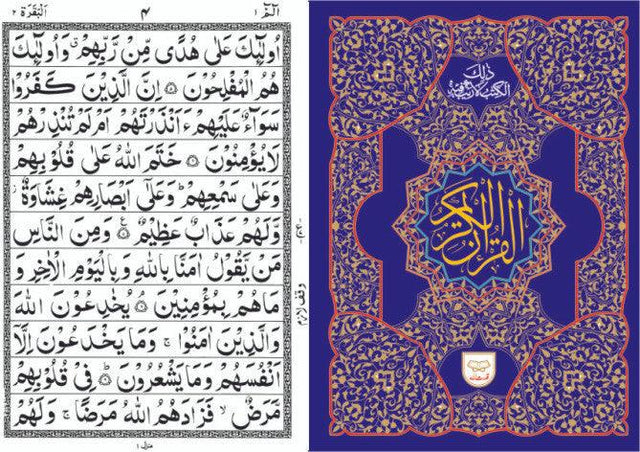 الٓمّٓ ١ ٤ اَلْبَقَرَة ٢
اُولٰٓئِكَ عَلٰى هُدًى مِّنْ رَّبِّهِمْ ۗ وَاُولٰٓئِكَ
هُمُ الْمُفْلِحُوْنَ ۝ اِنَّ الَّذِيْنَ كَفَرُوْا
سَوَآءٌ عَلَيْهِمْ ءَاَنْذَرْتَهُمْ اَمْ لَمْ تُنْذِرْهُمْ
لَا يُؤْمِنُوْنَ ۝ خَتَمَ اللهُ عَلٰى قُلُوْبِهِمْ
وَعَلٰى سَمْعِهِمْ ؕ وَعَلٰٓى اَبْصَارِهِمْ غِشَاوَةٌ
وَّلَهُمْ عَذَابٌ عَظِيْمٌ ۝ ع وَمِنَ النَّاسِ
مَنْ يَّقُوْلُ اٰمَنَّا بِاللهِ وَبِالْيَوْمِ الْاٰخِرِ وَ
مَا هُمْ بِمُؤْمِنِيْنَ ۝ يُخٰدِعُوْنَ اللهَ
وَالَّذِيْنَ اٰمَنُوْا ۚ وَمَا يَخْدَعُوْنَ اِلَّاۤ
اَنْفُسَهُمْ وَمَا يَشْعُرُوْنَ ۝ فِيْ قُلُوْبِهِمْ
مَّرَضٌ ۙ فَزَادَهُمُ اللهُ مَرَضًا ۚ وَلَهُمْ
منزل ١
وقف لازم
ذٰلِكَ
الكتٰب لا ريب فيه
القرآن الكريم